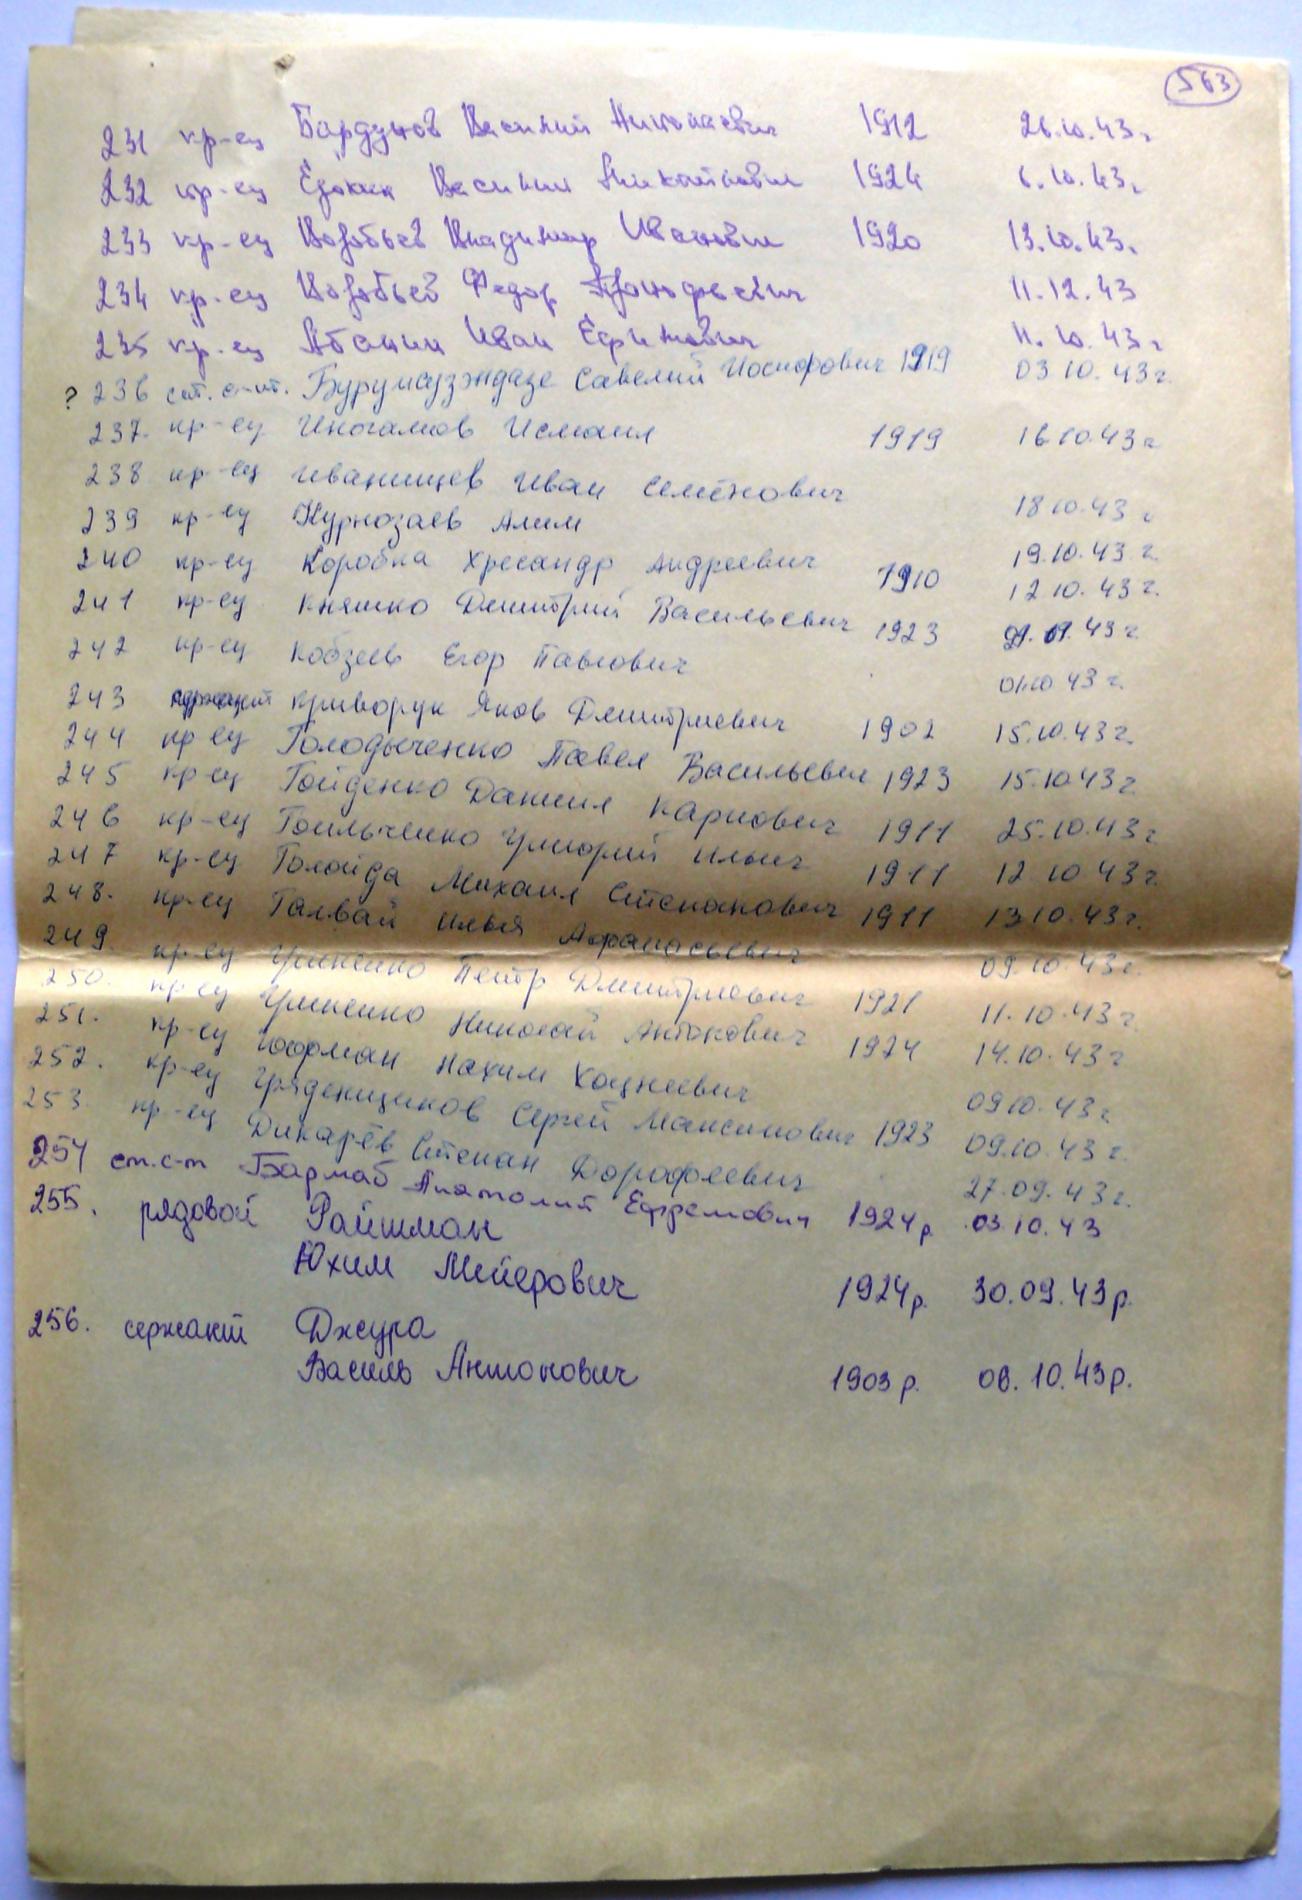 563
231 кр-ец Бардуков Василий Николаевич 1912 26.10.43 г
232 кр-ец Василий 1924 6.10.43 г
233 кр-ец Воробьев Владимир Иванович 1920 13.10.43 г
234 кр-ец Воробьев Федор 11.12.43
235 кр-ец Абанин Иван Ефимович 11.10.43 г
? 236 Савелий Иосифович 1919 03 10.43 г.
237. кр-ец Иногамов Исмаил 1919 16.10.43 г
238 кр-ец Иванищев Иван Семёнович 18 10.43 г
239 кр-ец Нурнозаев Алим 19.10.43 г.
240 кр-ец Коробка Хресандр Андреевич 1910 12 10.43 г.
241 кр-ец Княшко Дмитрий Васильевич 1923 09.43 г
242 кр-ец Кобзев Егор Павлович 01.10 43 г.
243 Криворук Яков Дмитриевич 1902 15.10.43 г.
244 кр ец Голодыченко Павел Васильевич 1923 15.10 43 г
245 кр-ец Гойденко Даниил Карпович 1911 25.10.43 г
246 кр-ец Григорий Ильич 1911 12 10 43 г.
247 кр-ец Голойда Михаил Степанович 1911 13 10.43 г.
248. кр-ец Галвай Илья Афанасьевич 09.10.43 г.
249. кр-ец Гриненко Петр Дмитриевич 1921 11.10.43 г
250. кр-ец Гриненко Николай Антонович 1924 14.10.43 г
251. кр-ец Гофман Нахим 09 10.43 г
252. кр-ец Сергей Максимович 1923 09.10.43 г.
253. кр-ец Дикарёв Степан Дорофеевич 27.09.43 г.
254 ст.с-т Анатолий Ефремович 1924 р. 03.10.43
255. рядовой Райшман
Юхим Мейерович 1924 р. 30.09.43 р.
256. сержант Джура
Василь Антонович 1903 р. 08.10.43 р.